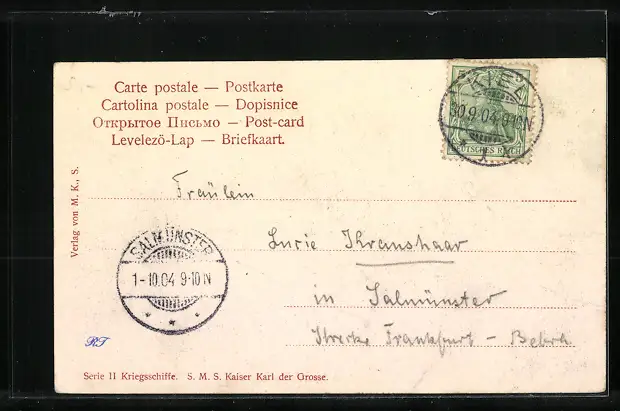 Carte postale — Postkarte
Cartolina postale — Dopisnice
Открытое Письмо — Post-card
Levelezö-Lap — Briefkaart.
KIEL
30.9.04.9-10N
DEUTSCHES REICH
Verlag von M. K., S.
Fräulein
Lucie Kranshaar
in Salmünster
Strecke Frankfurt - Bebra
SALMÜNSTER
1-10.04 9-10N
RT
Serie II Kriegsschiffe. S. M. S. Kaiser Karl der Grosse.